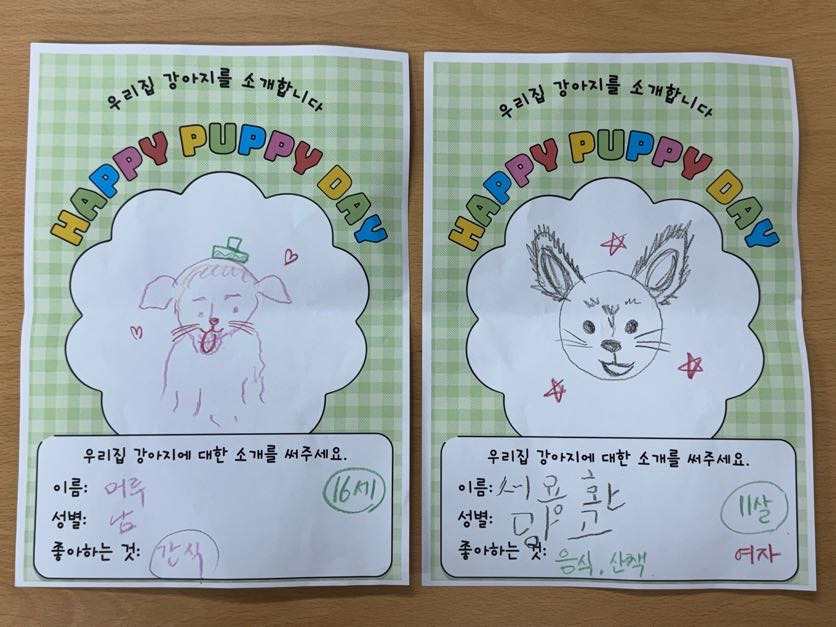 우리집 강아지를 소개합니다
HAPPY PUPPY DAY
우리집 강아지에 대한 소개를 써주세요.
이름: 머루
16세
성별: 남
좋아하는 것: 간식
우리집 강아지를 소개합니다
HAPPY PUPPY DAY
우리집 강아지에 대한 소개를 써주세요.
이름: 서용환
성별: 망고
11살
좋아하는 것: 음식, 산책
여자